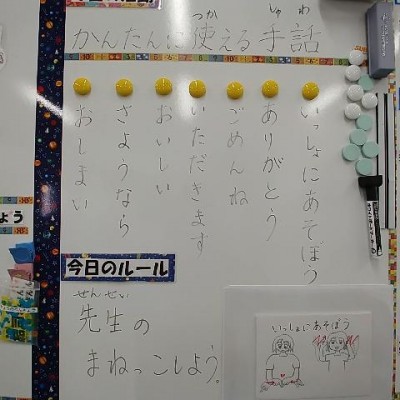 かんたんに使える手話
つか
しゅわ
いっしょにあそぼう
ありがとう
ごめんね
いただきます
おいしい
さようなら
おしまい
今日のルール
せんせい
先生の
まねっこしよう。
いっしょにあそぼう
ょう